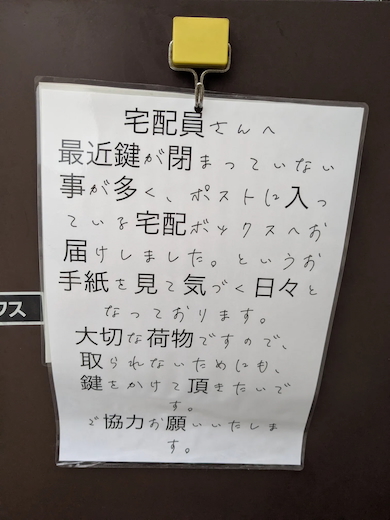 宅配員さんへ
最近鍵が閉まっていない
事が多く、ポストに入っ
ている宅配ボックスへお
届けしました。というお
手紙を見て気づく日々と
なっております。
大切な荷物ですので、
取られないためにも、
鍵をかけて頂きたいで
す。
ご協力お願いいたしま
す。
クス